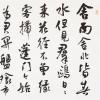 舍南舍北皆春
水但見群鷗日日
來花徑不曾緣
客掃蓬門今始
為君開盤飧市